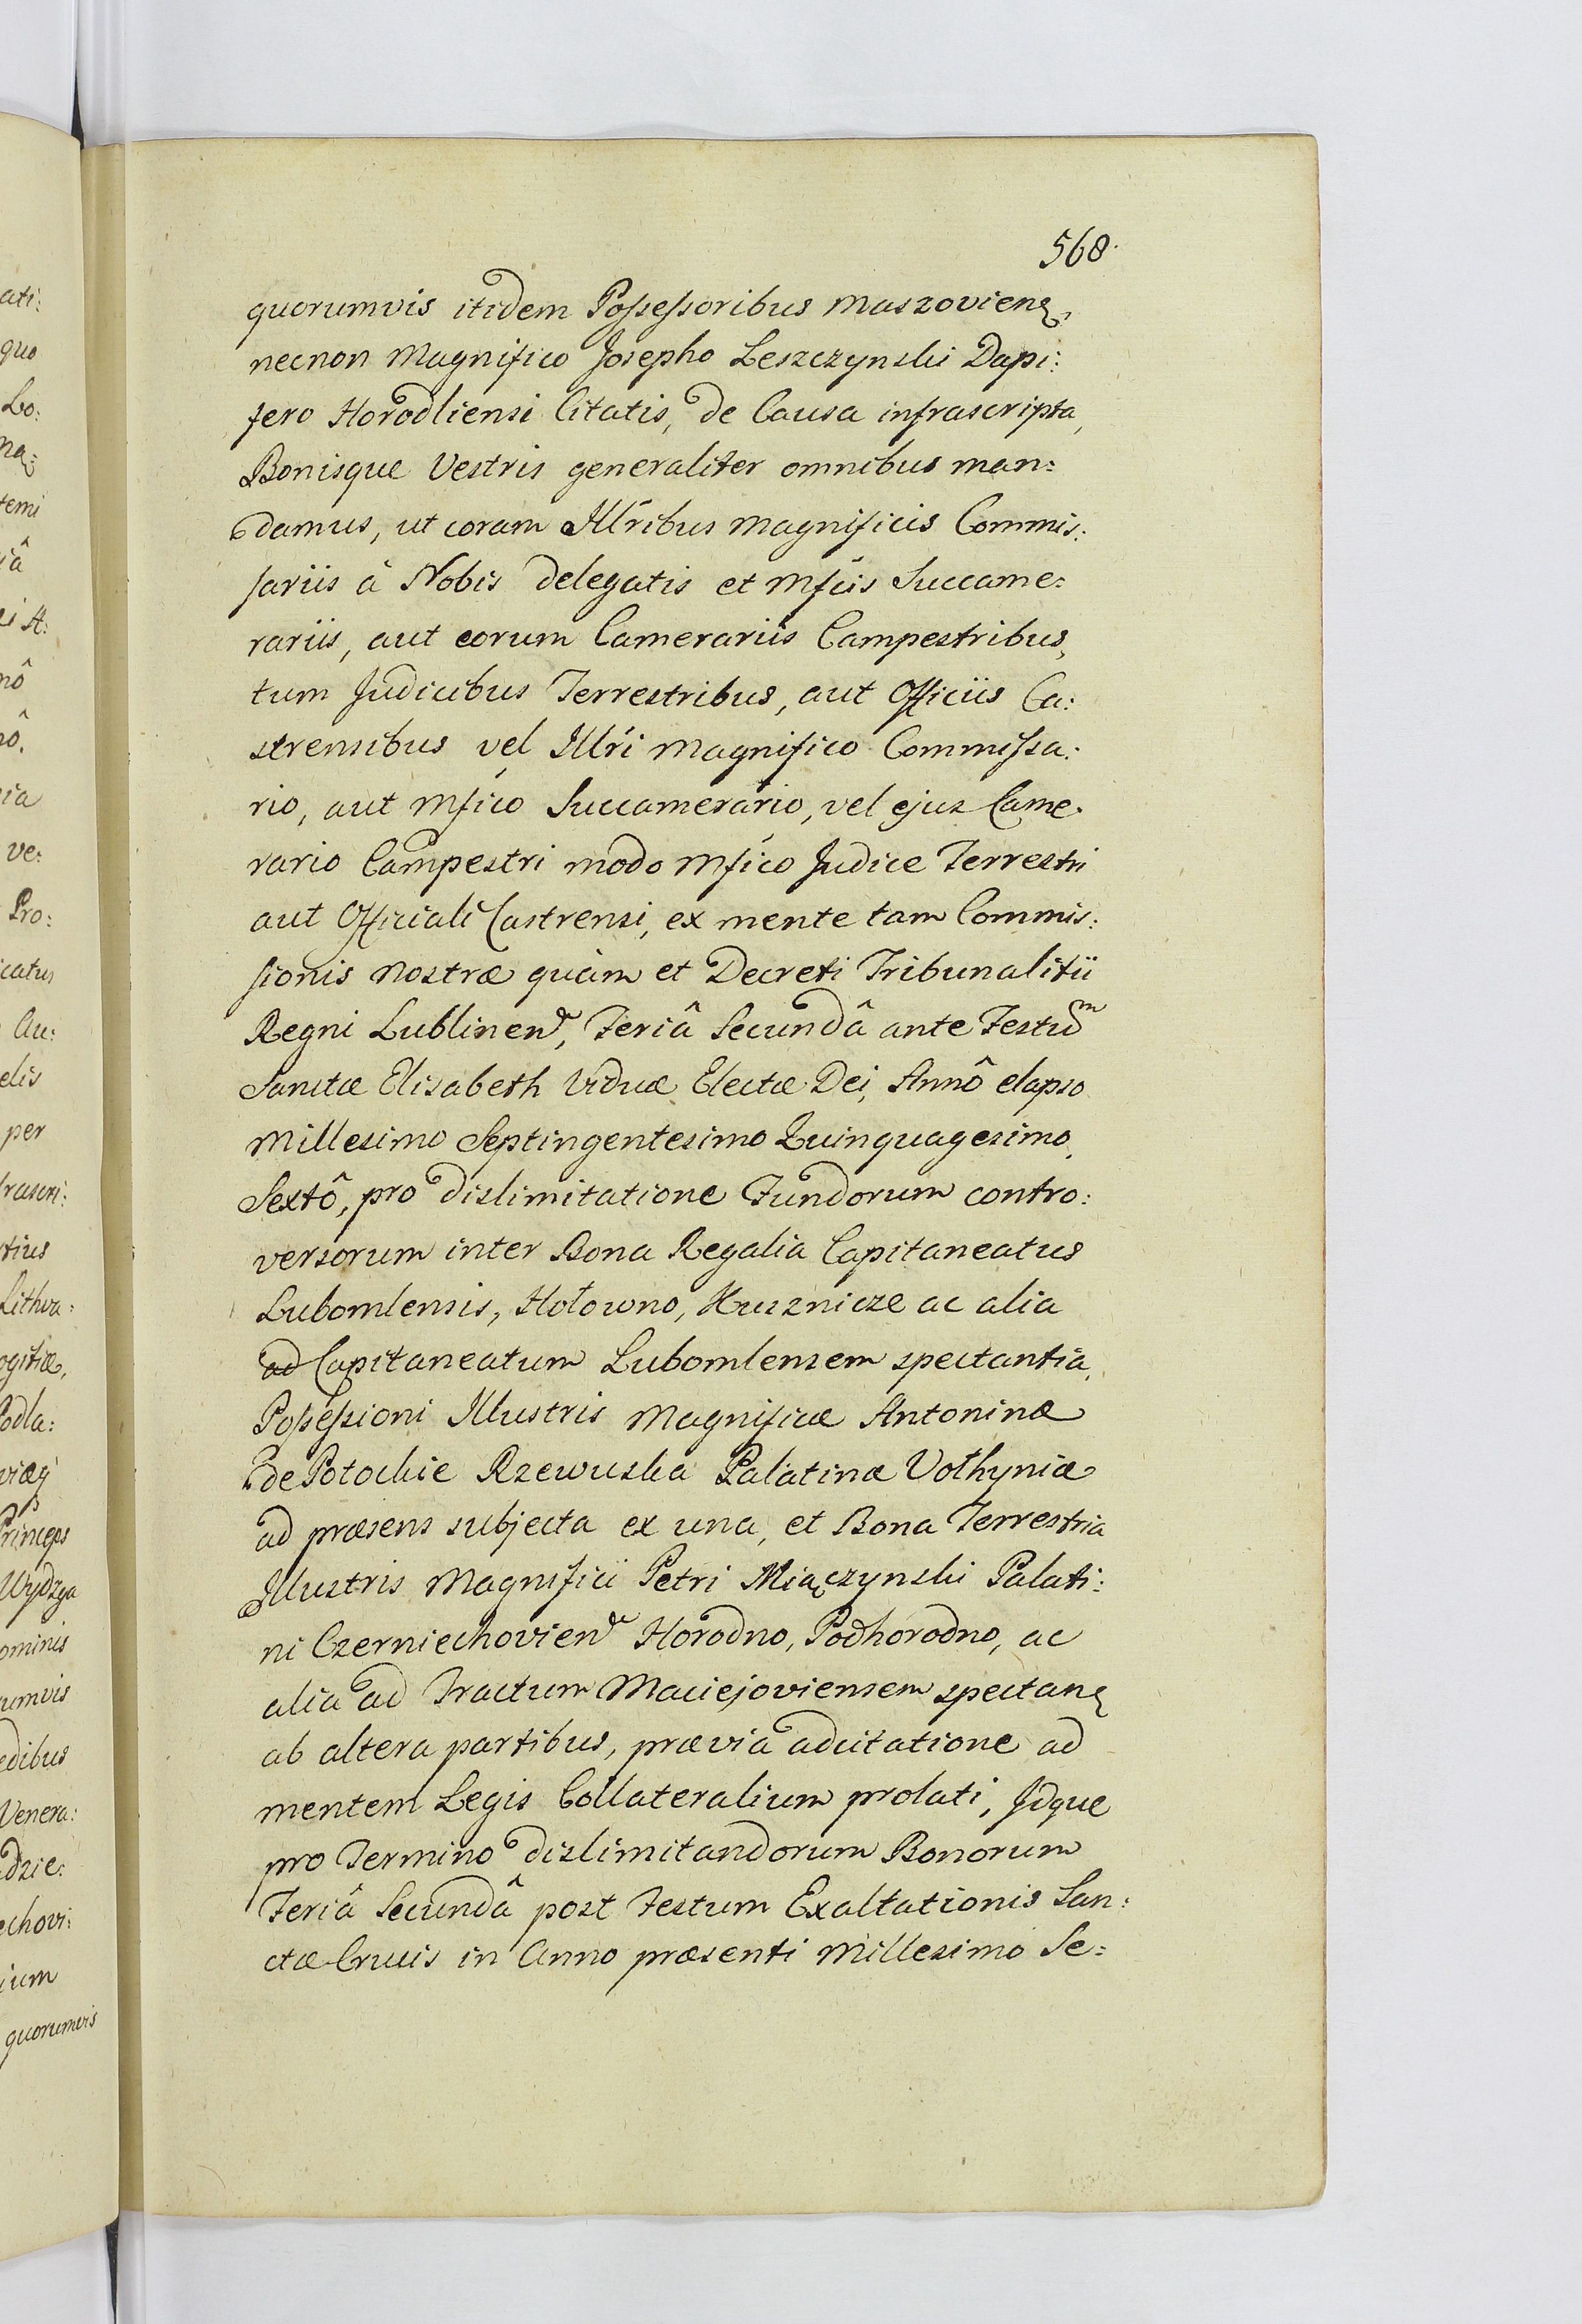 568.
quorumvis itidem Possessoribus Maszoviens,
necnon Magnifico Josepho Leszczynski Dapi:
fero Horodliensi Citatis, de Causa infrascripta,
Bonisque Vestris generaliter omnibus man:
damus, ut coram Illribus Magnificis Commis:
sariis à Nobis delegatis et Mficis Succame:
rariis, aut eorum Camerariis Campestribus,
tum Judicibus Terrestribus, aut Officiis Ca:
strensibus vel Illri Magnifico Commissa:
rio, aut Mfico Succamerario, vel ejus Came:
rario Campestri modo Mfico Judice Terrestri
aut Officiali Castrensi, ex mente tam Commis:
sionis nostræ quàm et Decreti Tribunalitii
Regni Lublinen, Feriâ Secundâ ante Festum
Sanctæ Elisabeth Viduæ Electæ Dei, Annô elapso
Millesimo Septingentesimo Quinquagesimo
Sextô, pro dislimitatione Fundorum contro:
versorum inter Bona Regalia Capitaneatus
Lubomlensis, Hołowno, Husznicze ac alia
ad Capitaneatum Lubomlensem spectantia,
Possessioni Illustris Magnificæ Antoninæ
de Potockie Rzewuska Palatinæ Volhyniæ
ad præsens subjecta ex una, et Bona Terrestria
Illustris Magnifici Petri Miączynski Palati:
ni Czerniechovien Horodno, Podhorodno, ac
alia ad Tractum Maciejoviensem spectan
ab altera partibus, prævia adcitatione ad
mentem Legis Collateralium prolati, Idque
pro Termino dislimitandorum Bonorum
Feriâ Secundâ post Festum Exaltationis San:
ctæ Crucis in Anno præsenti Millesimo Se:
ati:
quo
Lo:
temi
ve:
Pro:
Au:
elis
per
Lithva:
Princeps
Wydzga
ominis
umvis
edibus
Venera:
echovi:
ium
quorumvis